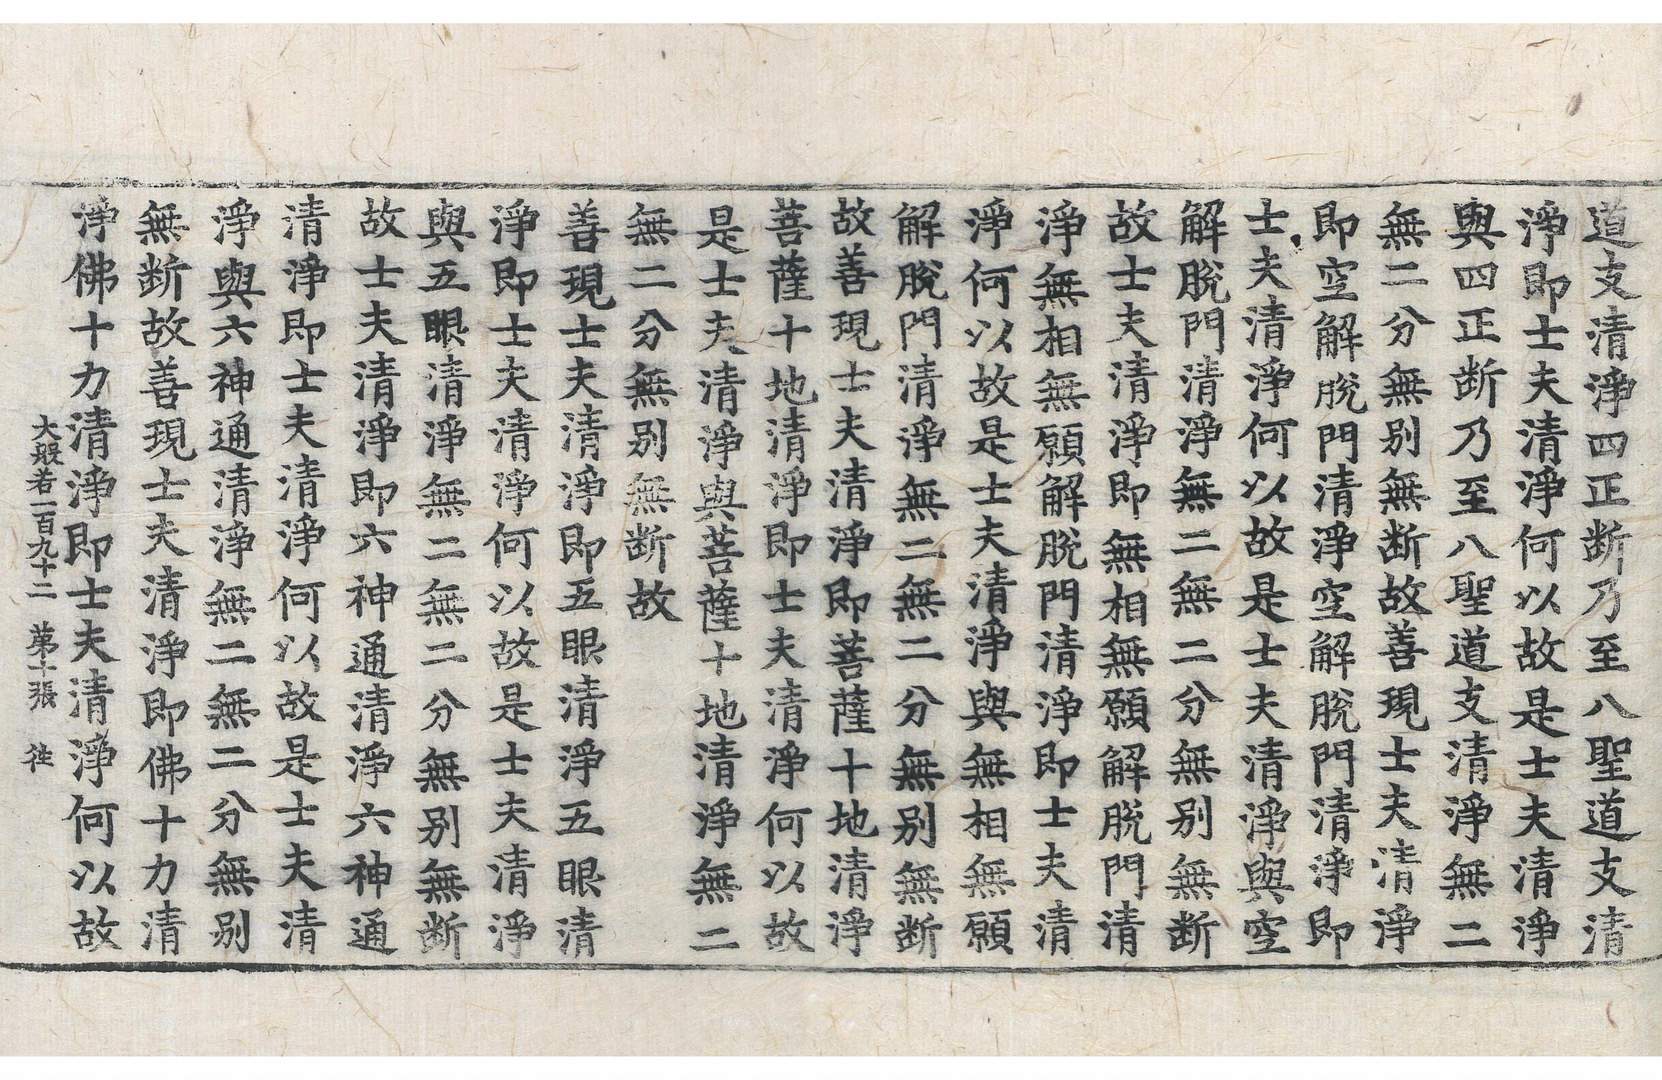 道支清淨四正断乃至八聖道支清
淨即士夫清淨何以故是士夫清淨
與四正断乃至八聖道支清淨無二
無二分無别無断故善現士夫清淨
即空解脫門清淨空解脫門清淨即
士夫清淨何以故是士夫清淨與空
解脫門清淨無二無二分無别無断
故士夫清淨即無相無願解脫門清
淨無相無願解脫門清淨即士夫清
淨何以故是士夫清淨與無相無願
解脫門清淨無二無二分無别無断
故善現士夫清淨即菩薩十地清淨
菩薩十地清淨即士夫清淨何以故
是士夫清淨與菩薩十地清淨無二
無二分無别無断故
善現士夫清淨即五眼清淨五眼清
淨即士夫清淨何以故是士夫清淨
與五眼清淨無二無二分無别無断
故士夫清淨即六神通清淨六神通
清淨即士夫清淨何以故是士夫清
淨與六神通清淨無二無二分無别
無断故善現士夫清淨即佛十力清
淨佛十力清淨即士夫清淨何以故
大般若一百九十二 苐十張 徃